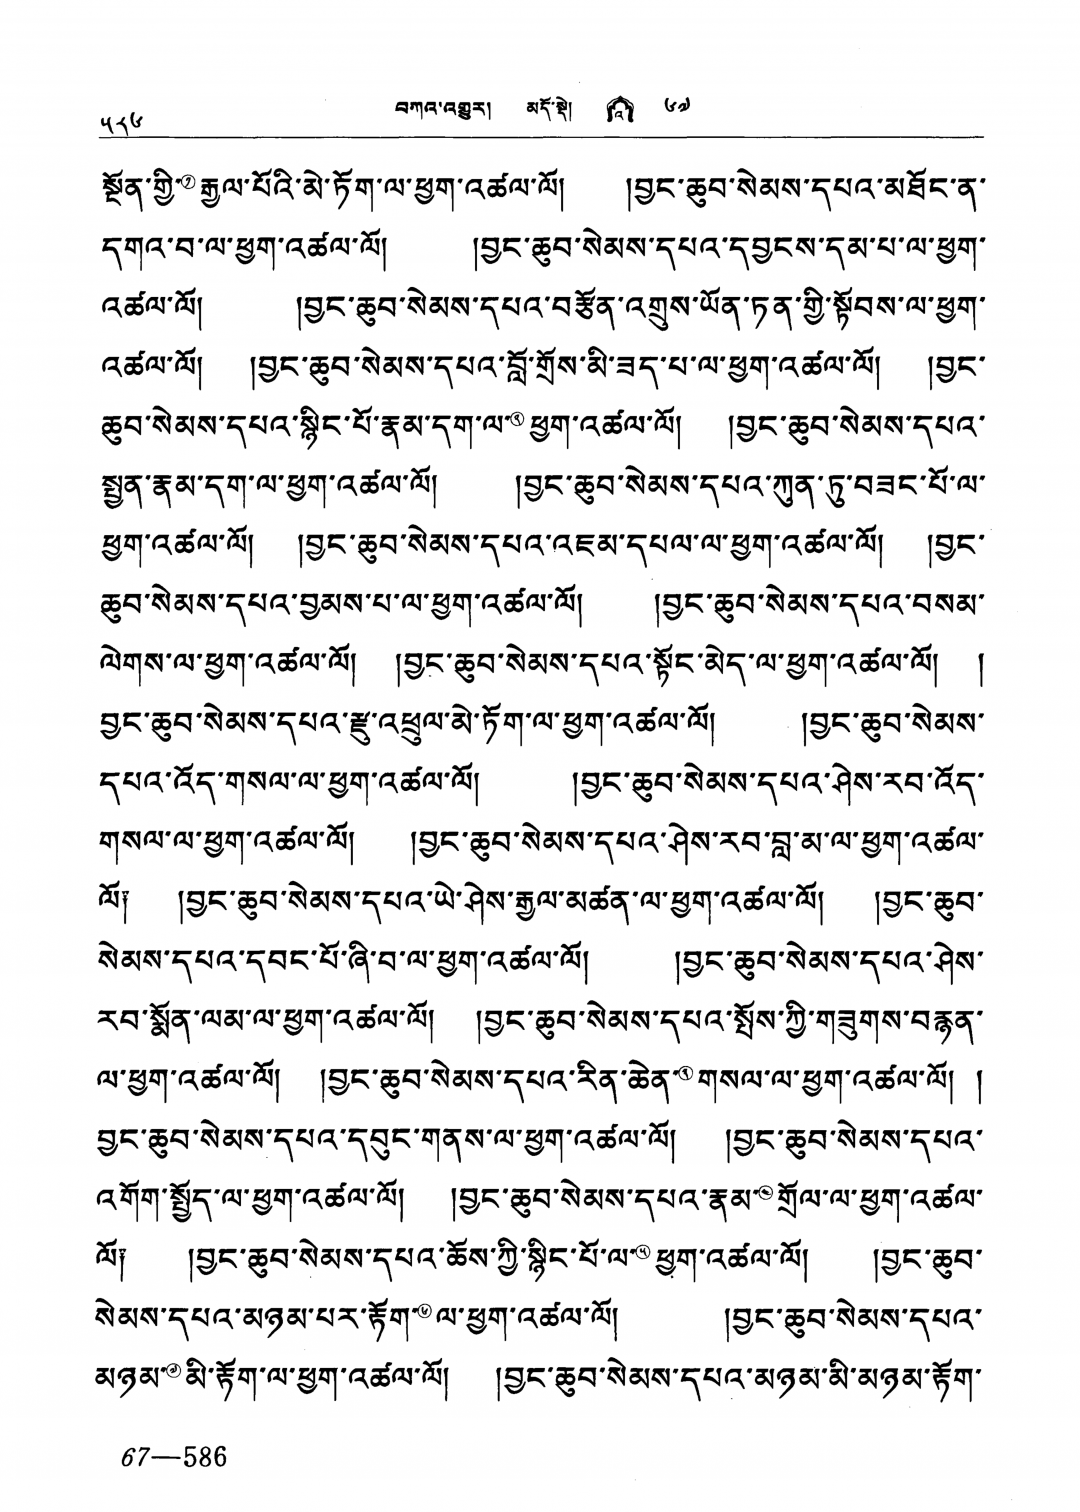 ༥༨༦ བཀའ་འགྱུར། མདོ་སྡེ། ༼འ༽ ༦༧
སྔོན་གྱི་①རྒྱལ་པོའི་མེ་ཏོག་ལ་ཕྱག་འཚལ་ལོ། །བྱང་ཆུབ་སེམས་དཔའ་མཐོང་ན་
དགའ་བ་ལ་ཕྱག་འཚལ་ལོ། །བྱང་ཆུབ་སེམས་དཔའ་དབྱངས་དམ་པ་ལ་ཕྱག་
འཚལ་ལོ། །བྱང་ཆུབ་སེམས་དཔའ་བརྩོན་འགྲུས་ཡོན་ཏན་གྱི་སྟོབས་ལ་ཕྱག་
འཚལ་ལོ། །བྱང་ཆུབ་སེམས་དཔའ་བློ་གྲོས་མི་ཟད་པ་ལ་ཕྱག་འཚལ་ལོ། །བྱང་
ཆུབ་སེམས་དཔའ་སྙིང་པོ་རྣམ་དག་ལ་②ཕྱག་འཚལ་ལོ། །བྱང་ཆུབ་སེམས་དཔའ་
སྤྱན་རྣམ་དག་ལ་ཕྱག་འཚལ་ལོ། །བྱང་ཆུབ་སེམས་དཔའ་ཀུན་ཏུ་བཟང་པོ་ལ་
ཕྱག་འཚལ་ལོ། །བྱང་ཆུབ་སེམས་དཔའ་འཇམ་དཔལ་ལ་ཕྱག་འཚལ་ལོ། །བྱང་
ཆུབ་སེམས་དཔའ་བྱམས་པ་ལ་ཕྱག་འཚལ་ལོ། །བྱང་ཆུབ་སེམས་དཔའ་བསམ་
ལེགས་ལ་ཕྱག་འཚལ་ལོ། །བྱང་ཆུབ་སེམས་དཔའ་སྟོང་མེད་ལ་ཕྱག་འཚལ་ལོ། །
བྱང་ཆུབ་སེམས་དཔའ་རྫུ་འཕྲུལ་མེ་ཏོག་ལ་ཕྱག་འཚལ་ལོ། །བྱང་ཆུབ་སེམས་
དཔའ་འོད་གསལ་ལ་ཕྱག་འཚལ་ལོ། །བྱང་ཆུབ་སེམས་དཔའ་ཤེས་རབ་འོད་
གསལ་ལ་ཕྱག་འཚལ་ལོ། །བྱང་ཆུབ་སེམས་དཔའ་ཤེས་རབ་བླ་མ་ལ་ཕྱག་འཚལ་
ལོ༔ །བྱང་ཆུབ་སེམས་དཔའ་ཡེ་ཤེས་རྒྱལ་མཚན་ལ་ཕྱག་འཚལ་ལོ། །བྱང་ཆུབ་
སེམས་དཔའ་དབང་པོ་ཞི་བ་ལ་ཕྱག་འཚལ་ལོ། །བྱང་ཆུབ་སེམས་དཔའ་ཤེས་
རབ་སྨོན་ལམ་ལ་ཕྱག་འཚལ་ལོ། །བྱང་ཆུབ་སེམས་དཔའ་སྤོས་ཀྱི་གཟུགས་བརྙན་
ལ་ཕྱག་འཚལ་ལོ། །བྱང་ཆུབ་སེམས་དཔའ་རིན་ཆེན་③གསལ་ལ་ཕྱག་འཚལ་ལོ། །
བྱང་ཆུབ་སེམས་དཔའ་དབུང་གནས་ལ་ཕྱག་འཚལ་ལོ། །བྱང་ཆུབ་སེམས་དཔའ་
འགོག་སྤྱོད་ལ་ཕྱག་འཚལ་ལོ། །བྱང་ཆུབ་སེམས་དཔའ་རྣམ་④གྲོལ་ལ་ཕྱག་འཚལ་
ལོ༔ །བྱང་ཆུབ་སེམས་དཔའ་ཆོས་ཀྱི་སྙིང་པོ་ལ་⑤ཕྱག་འཚལ་ལོ། །བྱང་ཆུབ་
སེམས་དཔའ་མཉམ་པར་རྟོག་⑥ལ་ཕྱག་འཚལ་ལོ། །བྱང་ཆུབ་སེམས་དཔའ་
མཉམ་⑦མི་རྟོག་ལ་ཕྱག་འཚལ་ལོ། །བྱང་ཆུབ་སེམས་དཔའ་མཉམ་མི་མཉམ་རྟོག་
67—586